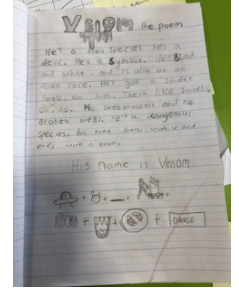 VENOM the poem
He's a alien species he's a
devil. He's a symbol. He's black
and white, and is also an an
alien race. He's got a spider
logo on him. Teeth like swords,
oh, no. No and no
Broken webs he's a dangerous
species, his name starts with v and
ends with a
His name is Venom
+ + _ +
+ + + DANGER